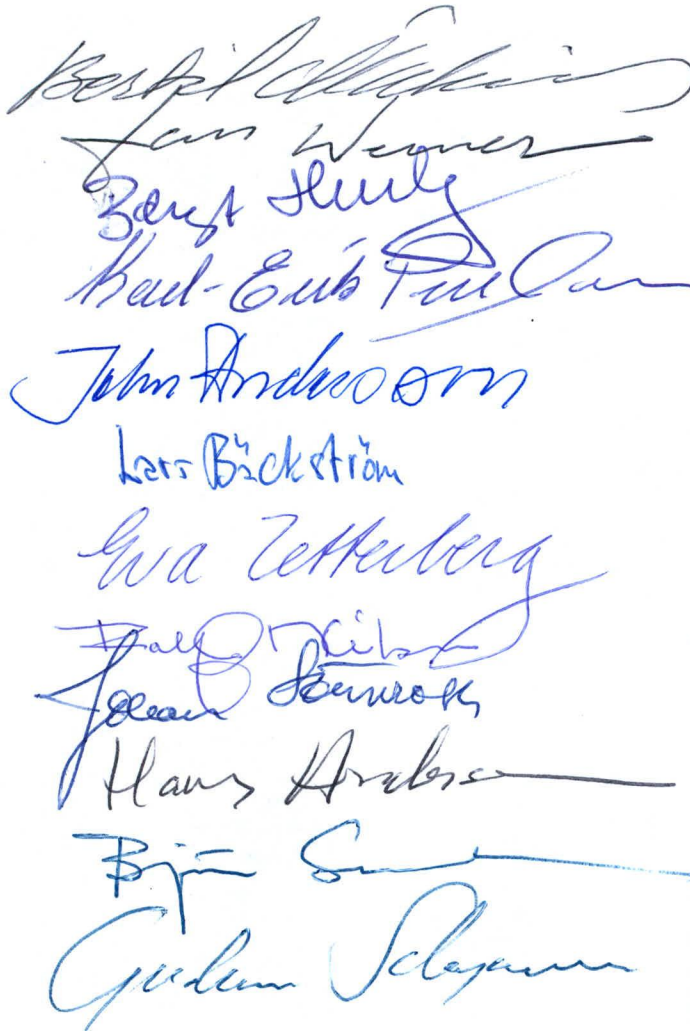 Bertil
Lars Werner
Bengt Hurtig
Karl-Erik Persson
John Andersson
Lars Bäckström
Eva Zetterberg
Rolf L Nilson
Johan Lönnroth
Hans Andersson
Björn S
Gudrun Schyman